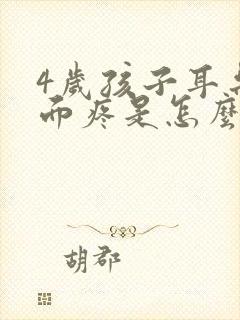 4歲孩子耳
而疼是怎麼
胡郡